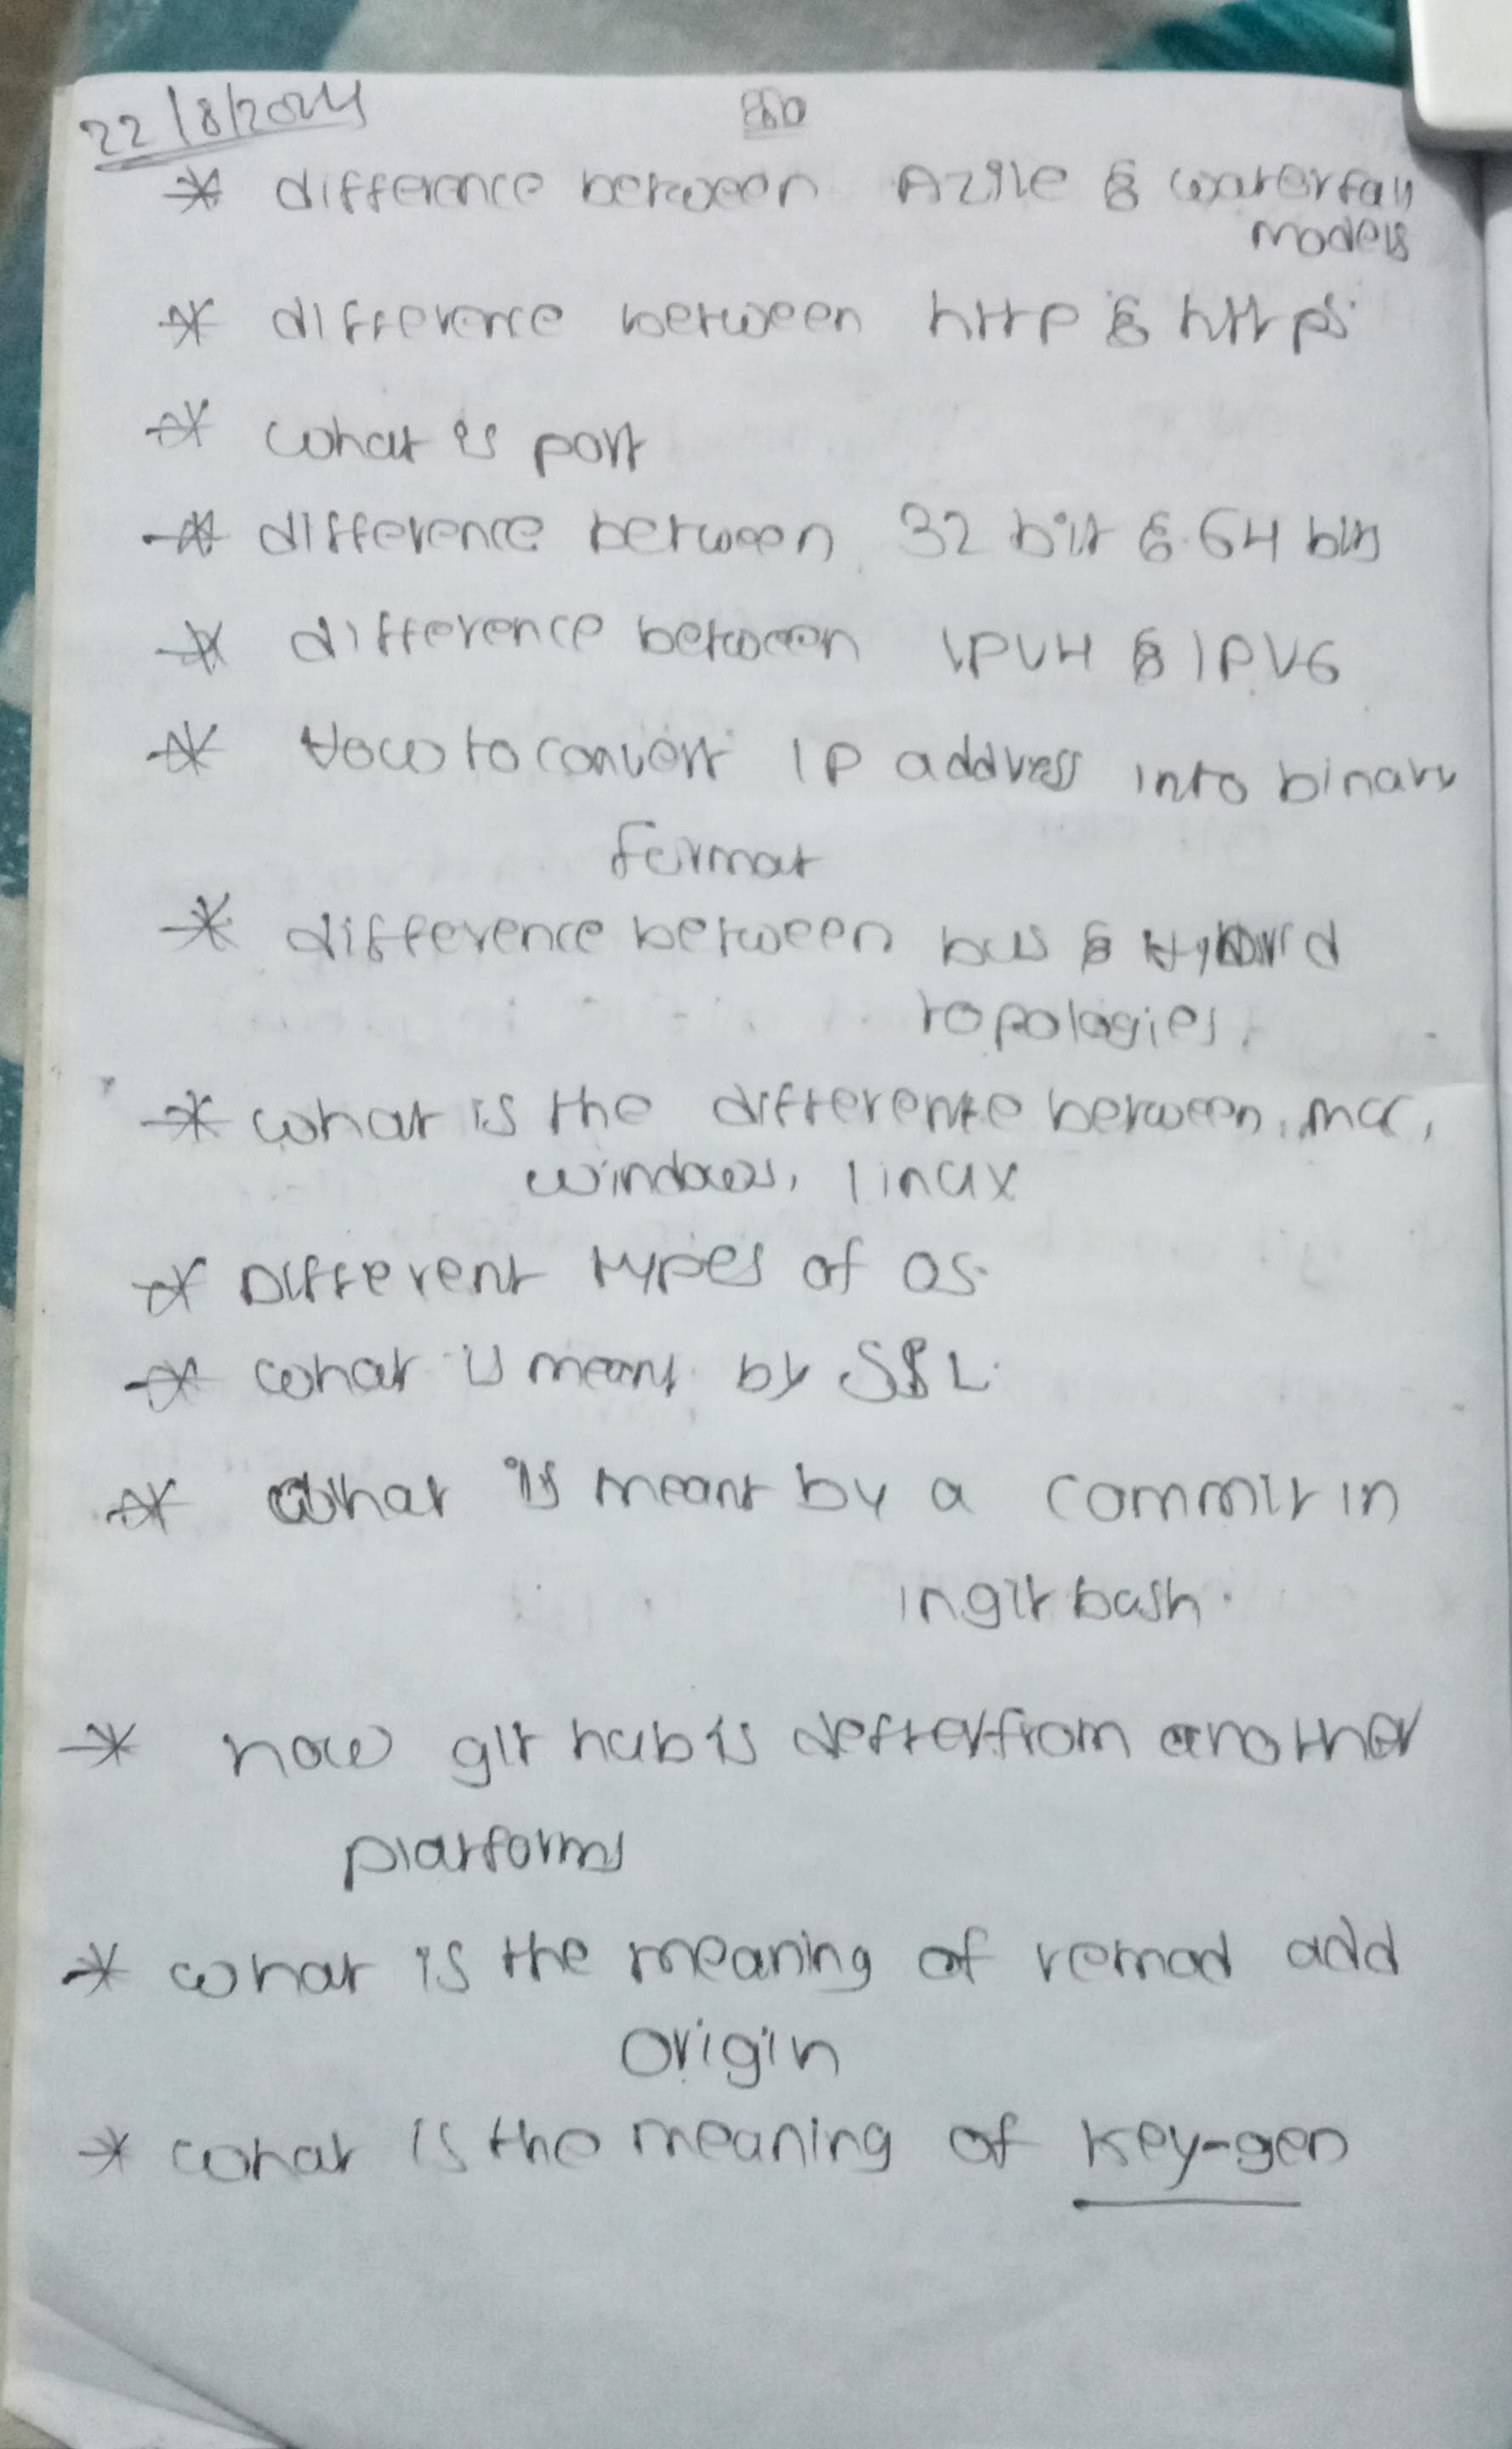 22/8/2024
* difference between Azile & waterfall
models
* difference between http & https.
* what is port
* difference between 32 bit & 64 bits
* difference between IPV4 & IPV6
* How to convert IP address into binary
format
* difference between bus & Hybrid
topologies.
* what is the difference between, mac,
windows, linux
* Different types of OS.
* what is meant by SSL.
* what is meant by a commit in
in git bash.
* how git hub is deffer from another
platforms
* what is the meaning of remod add
origin
* what is the meaning of key-gen